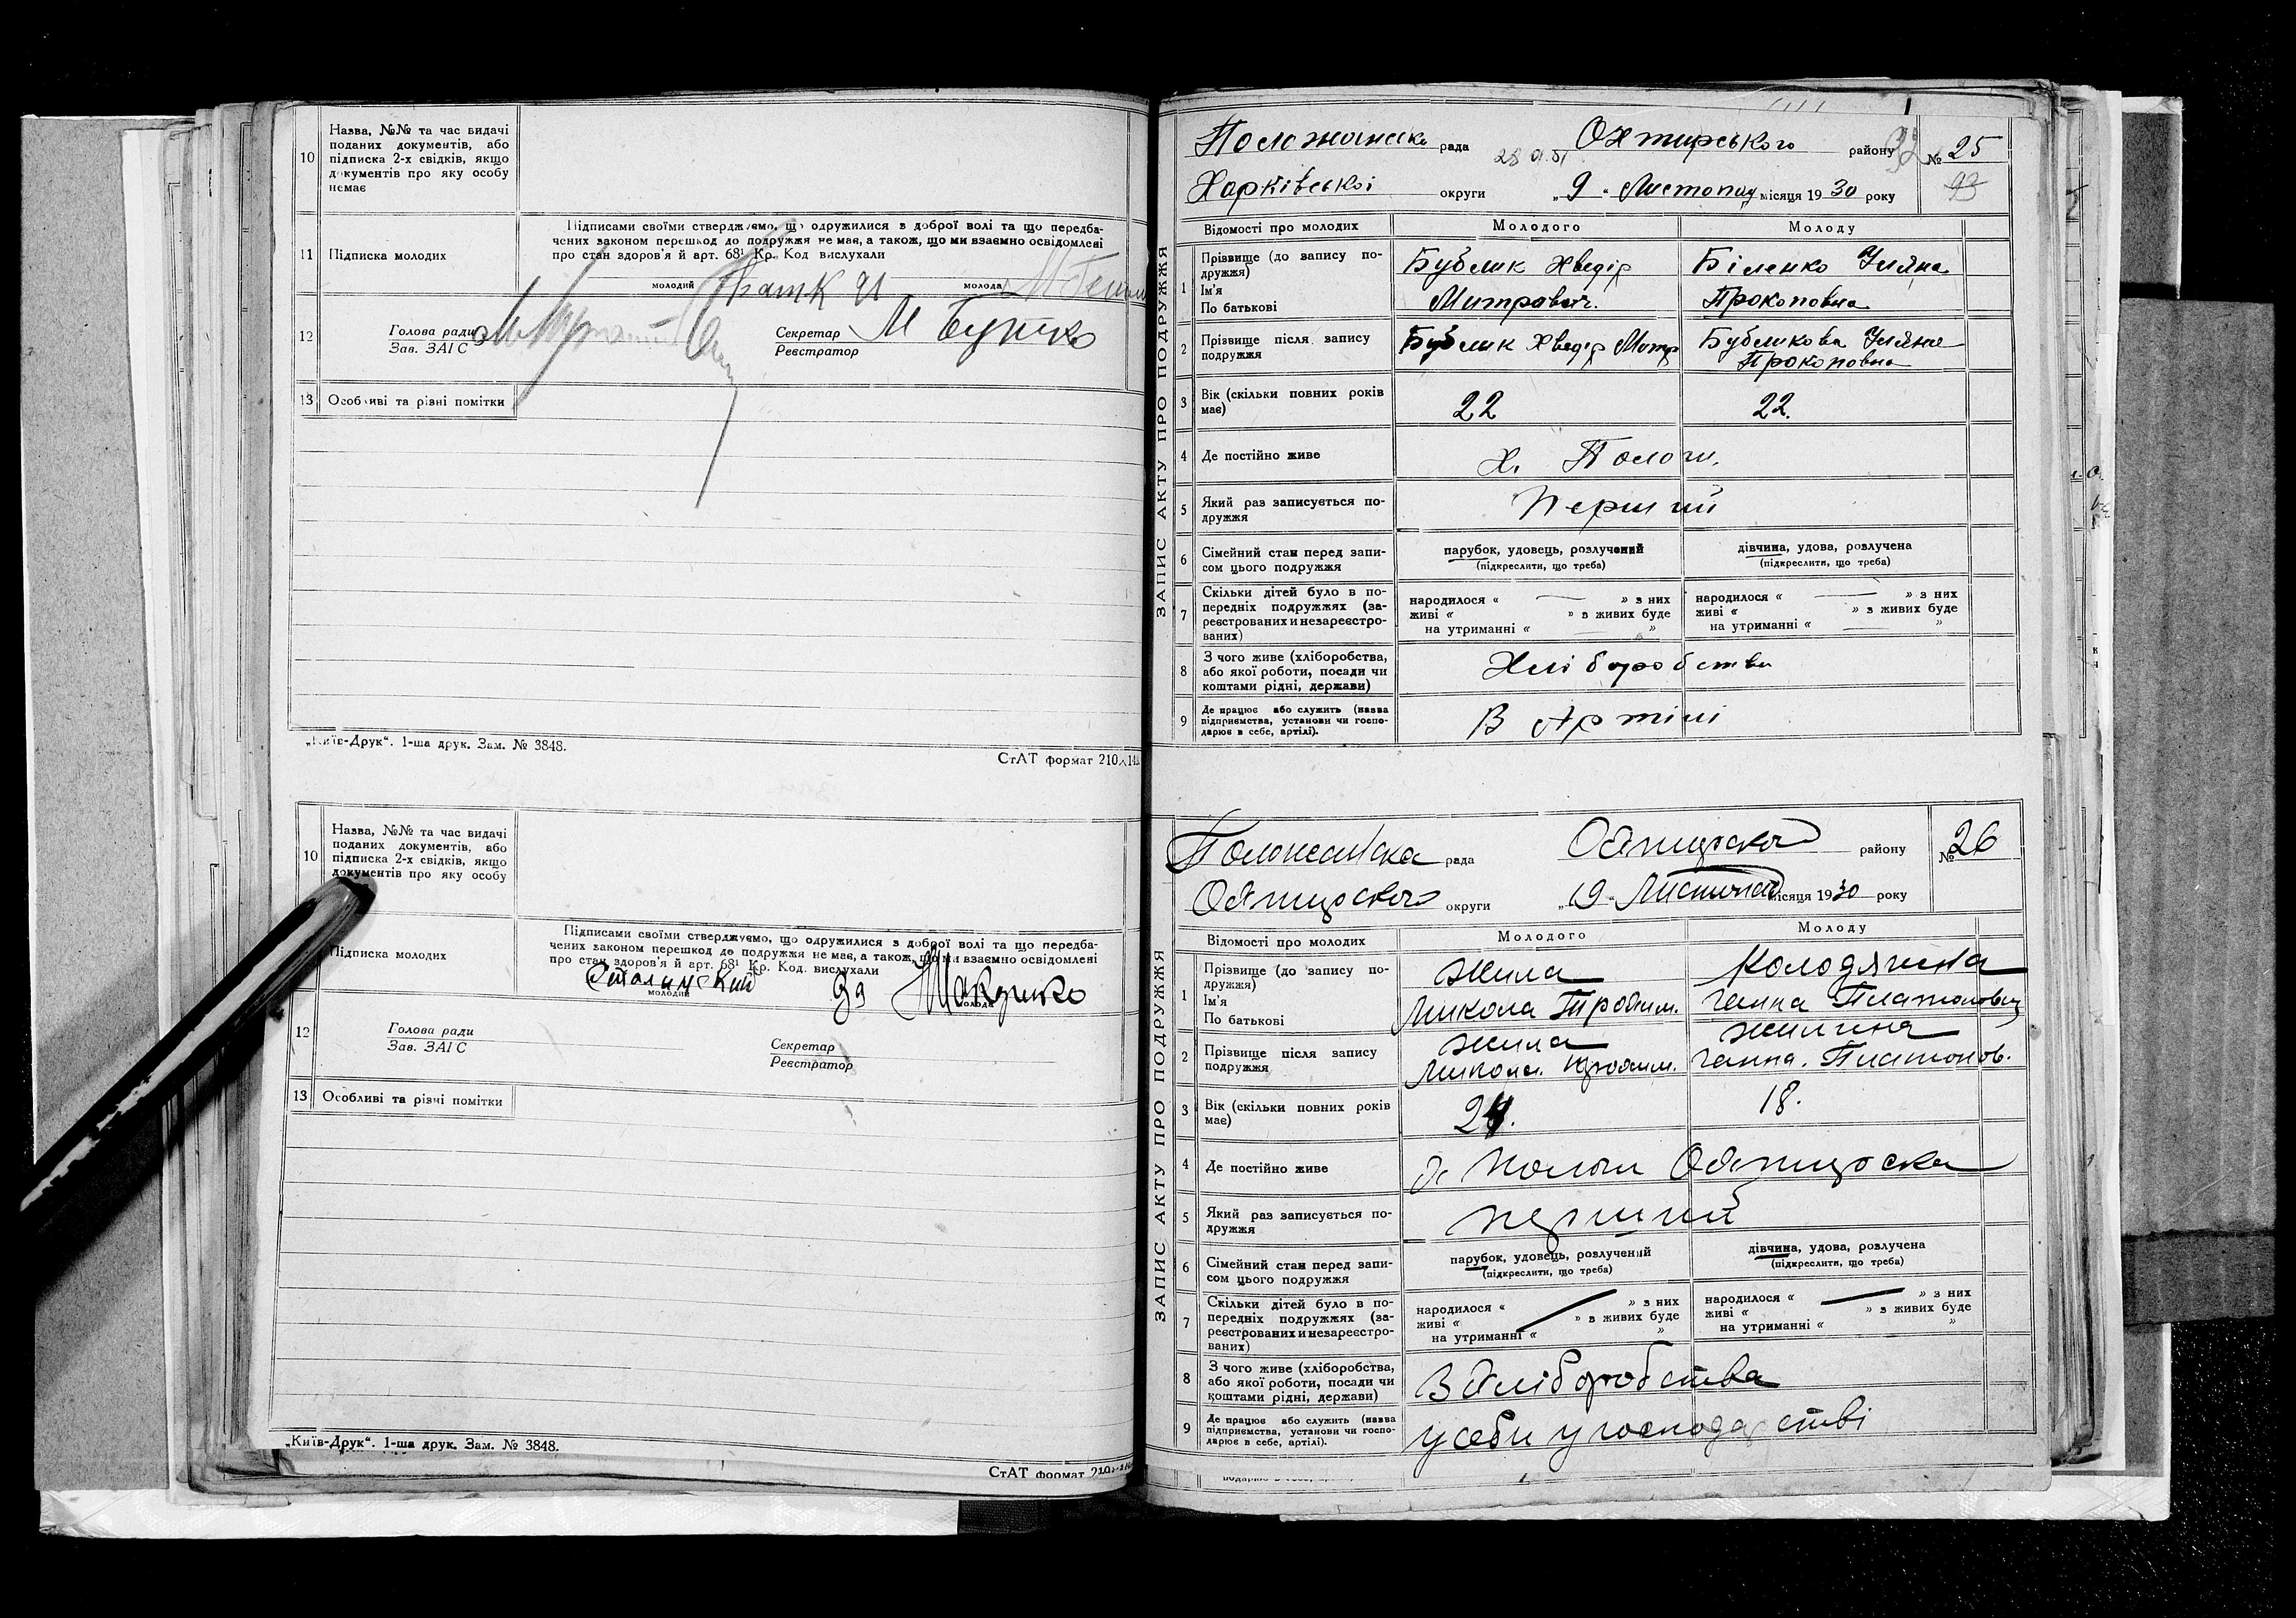 10
Назва, №№ та час видачі
поданих документів, або
підписка 2-х свідків, якщо
документів про яку особу
немає
11
Підписка молодих
Підписами своїми стверджуємо, що одружилися з доброї волі та що передба-
чених законом перешкод до подружжя не має, а також, що ми взаємно освідомлені
про стан здоров'я й арт. 68¹ Кр. Код вислухали
молодий
молода
12
Голова ради
Зав. ЗАГС
Секретар
Реєстратор
М Бутко
13
Особливі та різні помітки
„Київ-Друк“. 1-ша друк. Зам. № 3848.
СтАТ формат 210×14
10
Назва, №№ та час видачі
поданих документів, або
підписка 2-х свідків, якщо
документів про яку особу
Підписка молодих
Підписами своїми стверджуємо, що одружилися з доброї волі та що передба-
чених законом перешкод до подружжя не має, а також, що ми взаємно освідомлені
про стан здоров'я й арт. 68¹ Кр. Код. вислухали
молодий
молода
12
Голова ради
Зав. ЗАГС
Секретар
Реєстратор
13
Особливі та різні помітки
„Київ-Друк“. 1-ша друк. Зам. № 3848.
СтАТ формат
ЗАПИС АКТУ ПРО ПОДРУЖЖЯ
рада
Охтирського району
№ 25
Харківської округи „ 9 “ Листопад місяця 1930 року
93
Відомості про молодих
Молодого
Молоду
1
Прізвище (до запису по-
дружжя)
Ім'я
По батькові
Бублик Хведір
Митрович.
Біленко Уляна
Прокоповна
2
Прізвище після запису
подружжя
Бублик Хведір Митр
Бубликова Уляна
Прокоповна
3
Вік (скільки повних років
має)
22
22.
4
Де постійно живе
х. Пологи.
5
Який раз записується по-
дружжя
Перший
6
Сімейний стан перед запи-
сом цього подружжя
парубок, удовець, розлучений
(підкреслити, що треба)
дівчина, удова, розлучена
(підкреслити, що треба)
7
Скільки дітей було в по-
передніх подружжях (за-
реєстрованих и незареєстро-
ваних)
народилося « — » з них
живі « » з живих буде
на утриманні « — »
народилося « — » з них
живі « » з живих буде
на утриманні « — »
8
З чого живе (хліборобства,
або якої роботи, посади чи
коштами рідні, держави)
Хліборобства
9
Де працює або служить (назва
підприємства, установи чи госпо-
дарює в себе, артілі).
В Артілі
ЗАПИС АКТУ ПРО ПОДРУЖЖЯ
рада
району
№ 26
округи „ 19 “ місяця 1930 року
Відомості про молодих
Молодого
Молоду
1
Прізвище (до запису по-
дружжя)
Ім'я
По батькові
Жила
Микола Трохим.
Колодяжна
Ганна Платоновна
2
Прізвище після запису
подружжя
Жила
Микола. Трохим.
Жилина
Ганна. Платонов.
3
Вік (скільки повних років
має)
24.
18.
4
Де постійно живе
5
Який раз записується по-
дружжя
перший
6
Сімейний стан перед запи-
сом цього подружжя
парубок, удовець, розлучений
(підкреслити, що треба)
дівчина, удова, розлучена
(підкреслити, що треба)
7
Скільки дітей було в по-
передніх подружжях (за-
реєстрованих и незареєстро-
ваних)
народилося « » з них
живі « » з живих буде
на утриманні « »
народилося « — » з них
живі « » з живих буде
на утриманні « »
8
З чого живе (хліборобства,
або якої роботи, посади чи
коштами рідні, держави)
З хліборобства
9
Де працює або служить (назва
підприємства, установи чи госпо-
дарює в себе, артілі).
у себи у господарстві